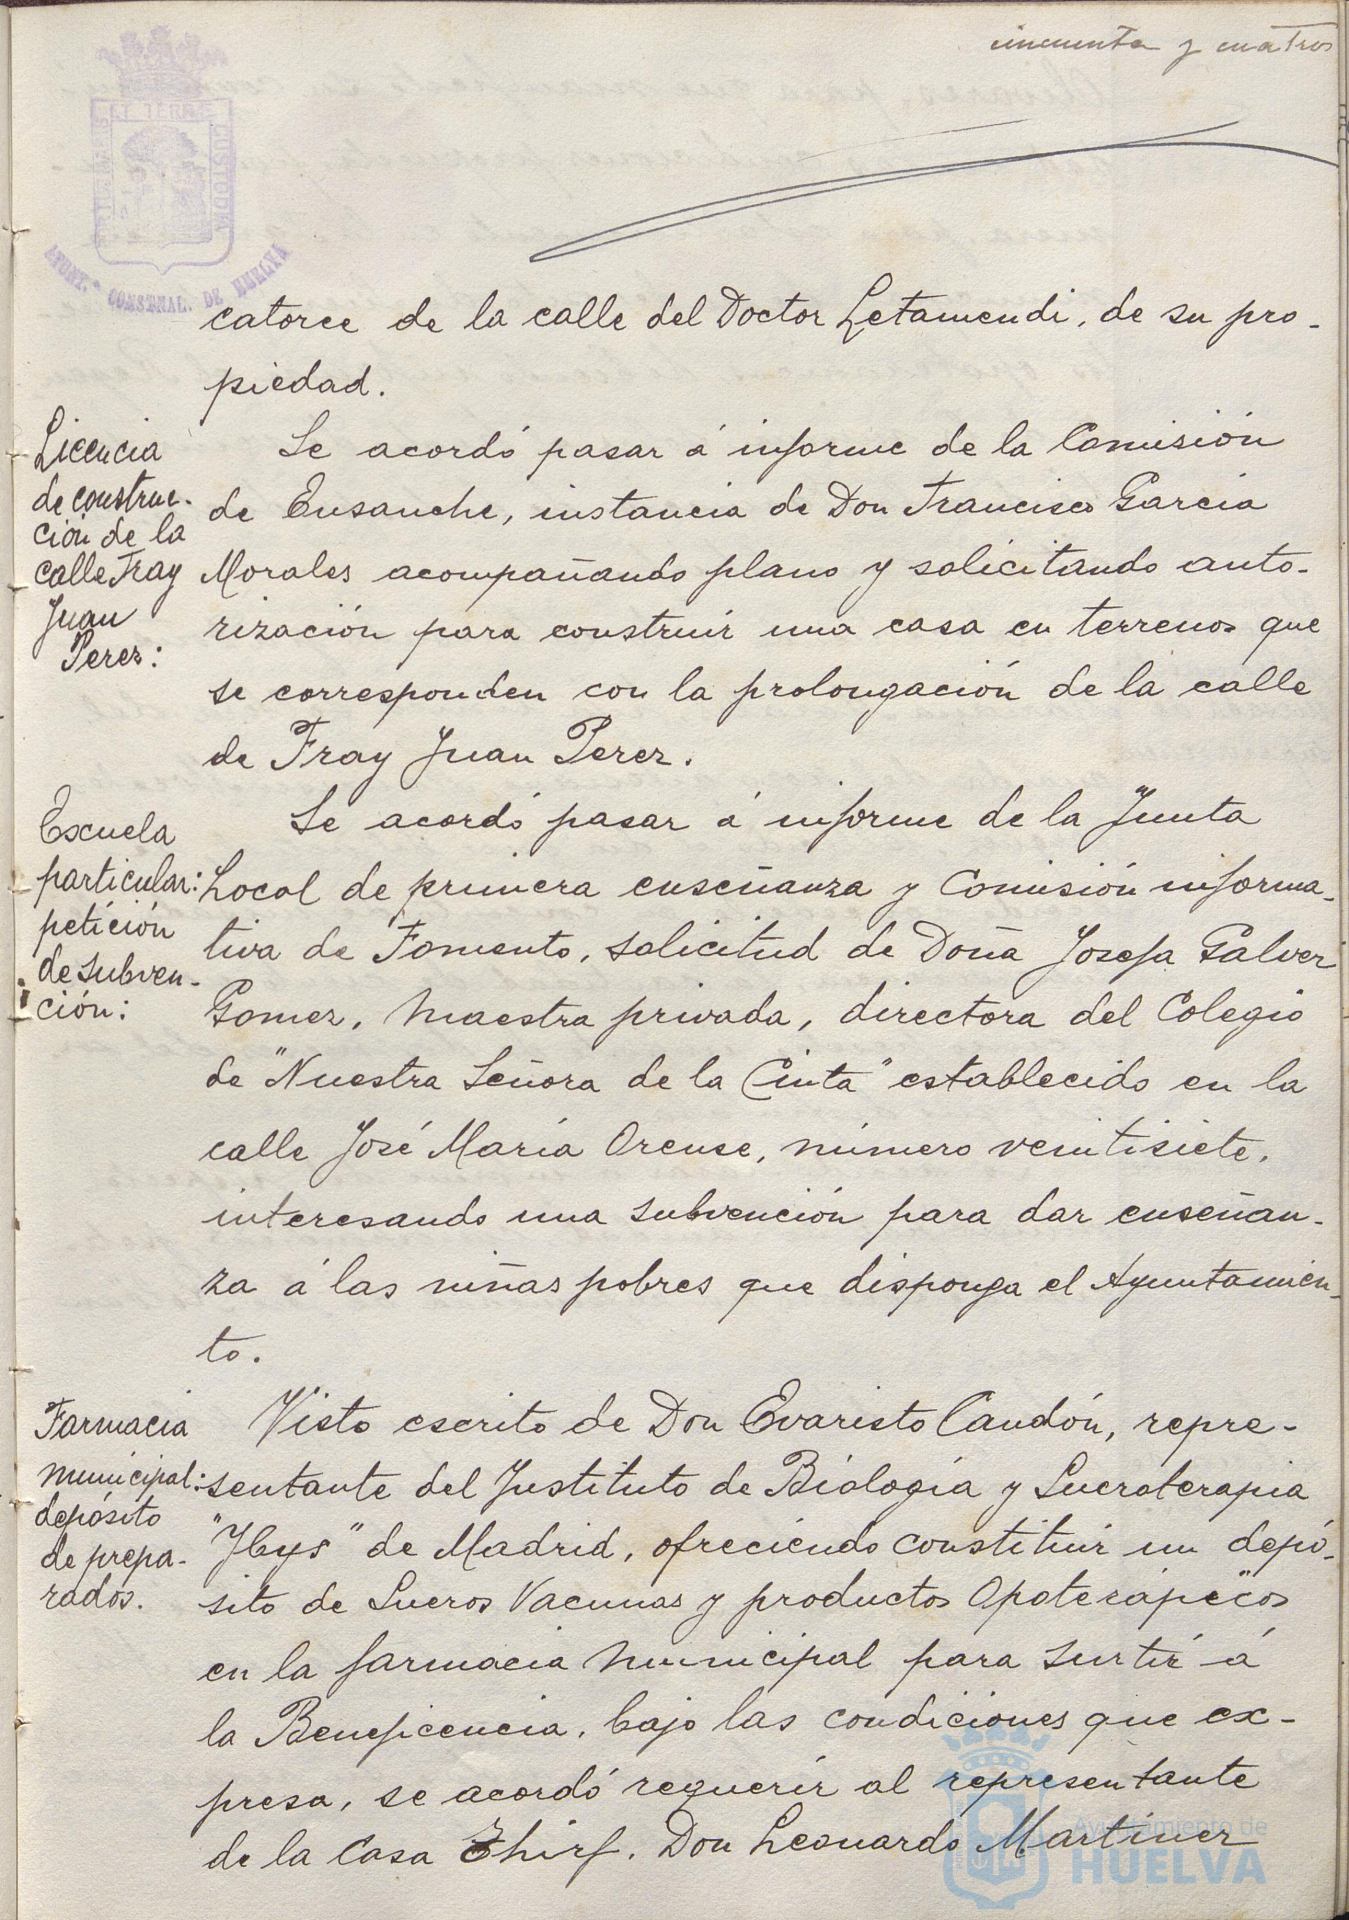 cincuenta y cuatro
PORTUS MARIS ET TERRAE CUSTODIA
AYUNT. CONSTNAL. DE HUELVA
catorce de la calle del Doctor Letamendi, de su pro-
piedad.
Licencia
de construc-
ción de la
calle Fray
Juan
Perez:
Se acordó pasar á informe de la Comisión
de Ensanche, instancia de Don Francisco Garcia
Morales acompañando plano y solicitando auto-
rización para construir una casa en terrenos que
se corresponden con la prolongación de la calle
de Fray Juan Perez.
Escuela
particular:
petición
de subven-
ción:
Se acordó pasar á informe de la Junta
Local de primera enseñanza y Comisión informa-
tiva de Fomento, solicitud de Doña Josefa Galvez
Gomez, Maestra privada, directora del Colegio
de "Nuestra Señora de la Cinta" establecido en la
calle José María Orense, número veintisiete,
interesando una subvención para dar enseñan-
za á las niñas pobres que disponga el Ayuntamien-
to.
Farmacia
municipal:
depósito
de prepa-
rados.
Visto escrito de Don Evaristo Caudón, repre-
sentante del Instituto de Biología y Sueroterapia
"Ibys" de Madrid, ofreciendo constituir un depó-
sito de Sueros Vacunas y productos Opoterápicos
en la farmacia Municipal para surtir á
la Beneficencia, bajo las condiciones que ex-
presa, se acordó requerir al representante
de la Casa, Don Leonardo Martinez
Ayuntamiento de
HUELVA